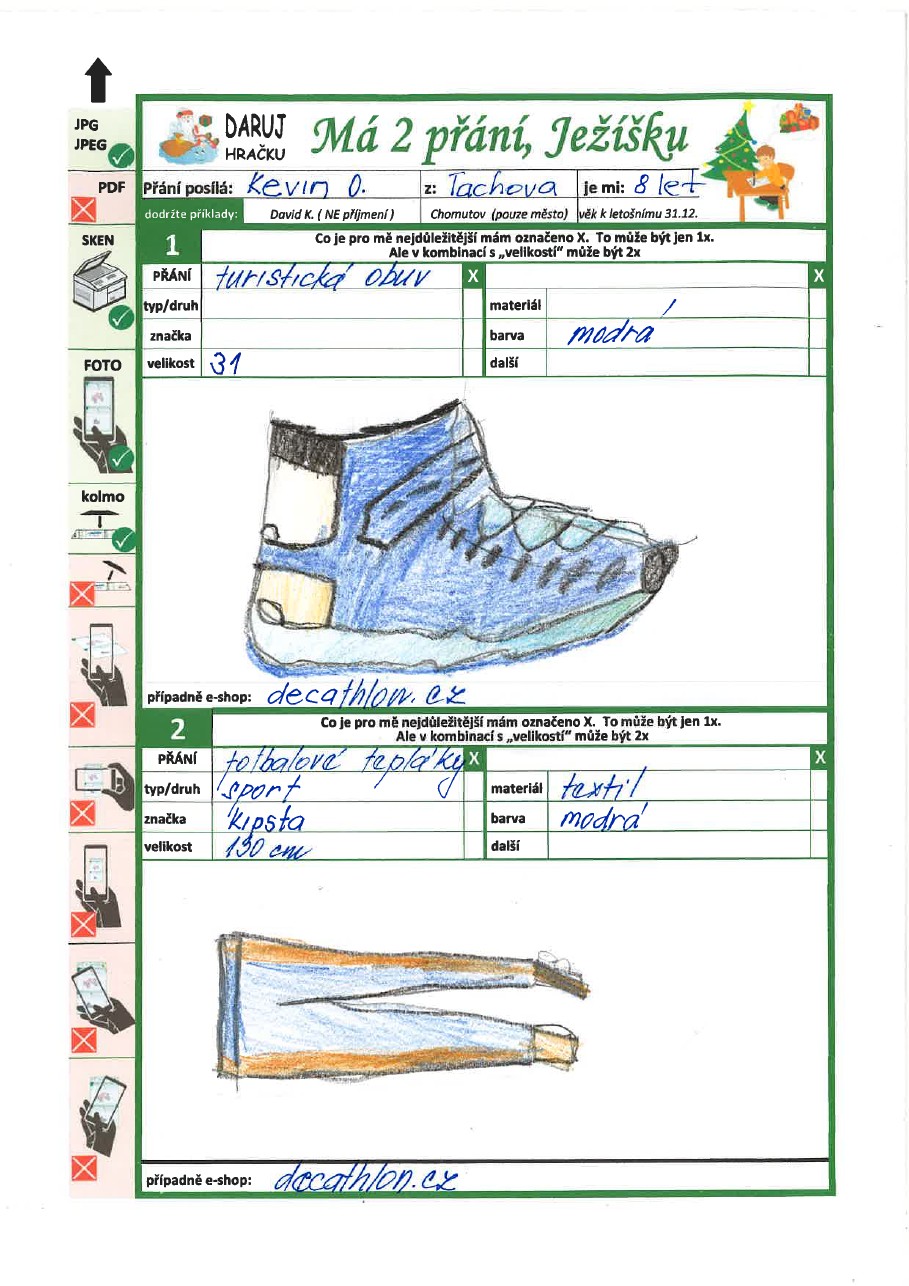 JPG
JPEG
PDF
SKEN
FOTO
kolmo
DARUJ
HRAČKU
Má 2 přání, Ježíšku
Přání posílá: Kevin O. z: Tachova je mi: 8 let
dodržte příklady: David K. ( NE příjmení ) Chomutov (pouze město) věk k letošnímu 31.12.
1 Co je pro mě nejdůležitější mám označeno X. To může být jen 1x.
Ale v kombinací s „velikostí" může být 2x
PŘÁNÍ turistická obuv X X
typ/druh materiál
značka barva modrá
velikost 31 další
případně e-shop: decathlon.cz
2 Co je pro mě nejdůležitější mám označeno X. To může být jen 1x.
Ale v kombinací s „velikostí" může být 2x
PŘÁNÍ fotbalové tepláky X X
typ/druh sport materiál textil
značka kipsta barva modrá
velikost 130 cm další
případně e-shop: decathlon.cz